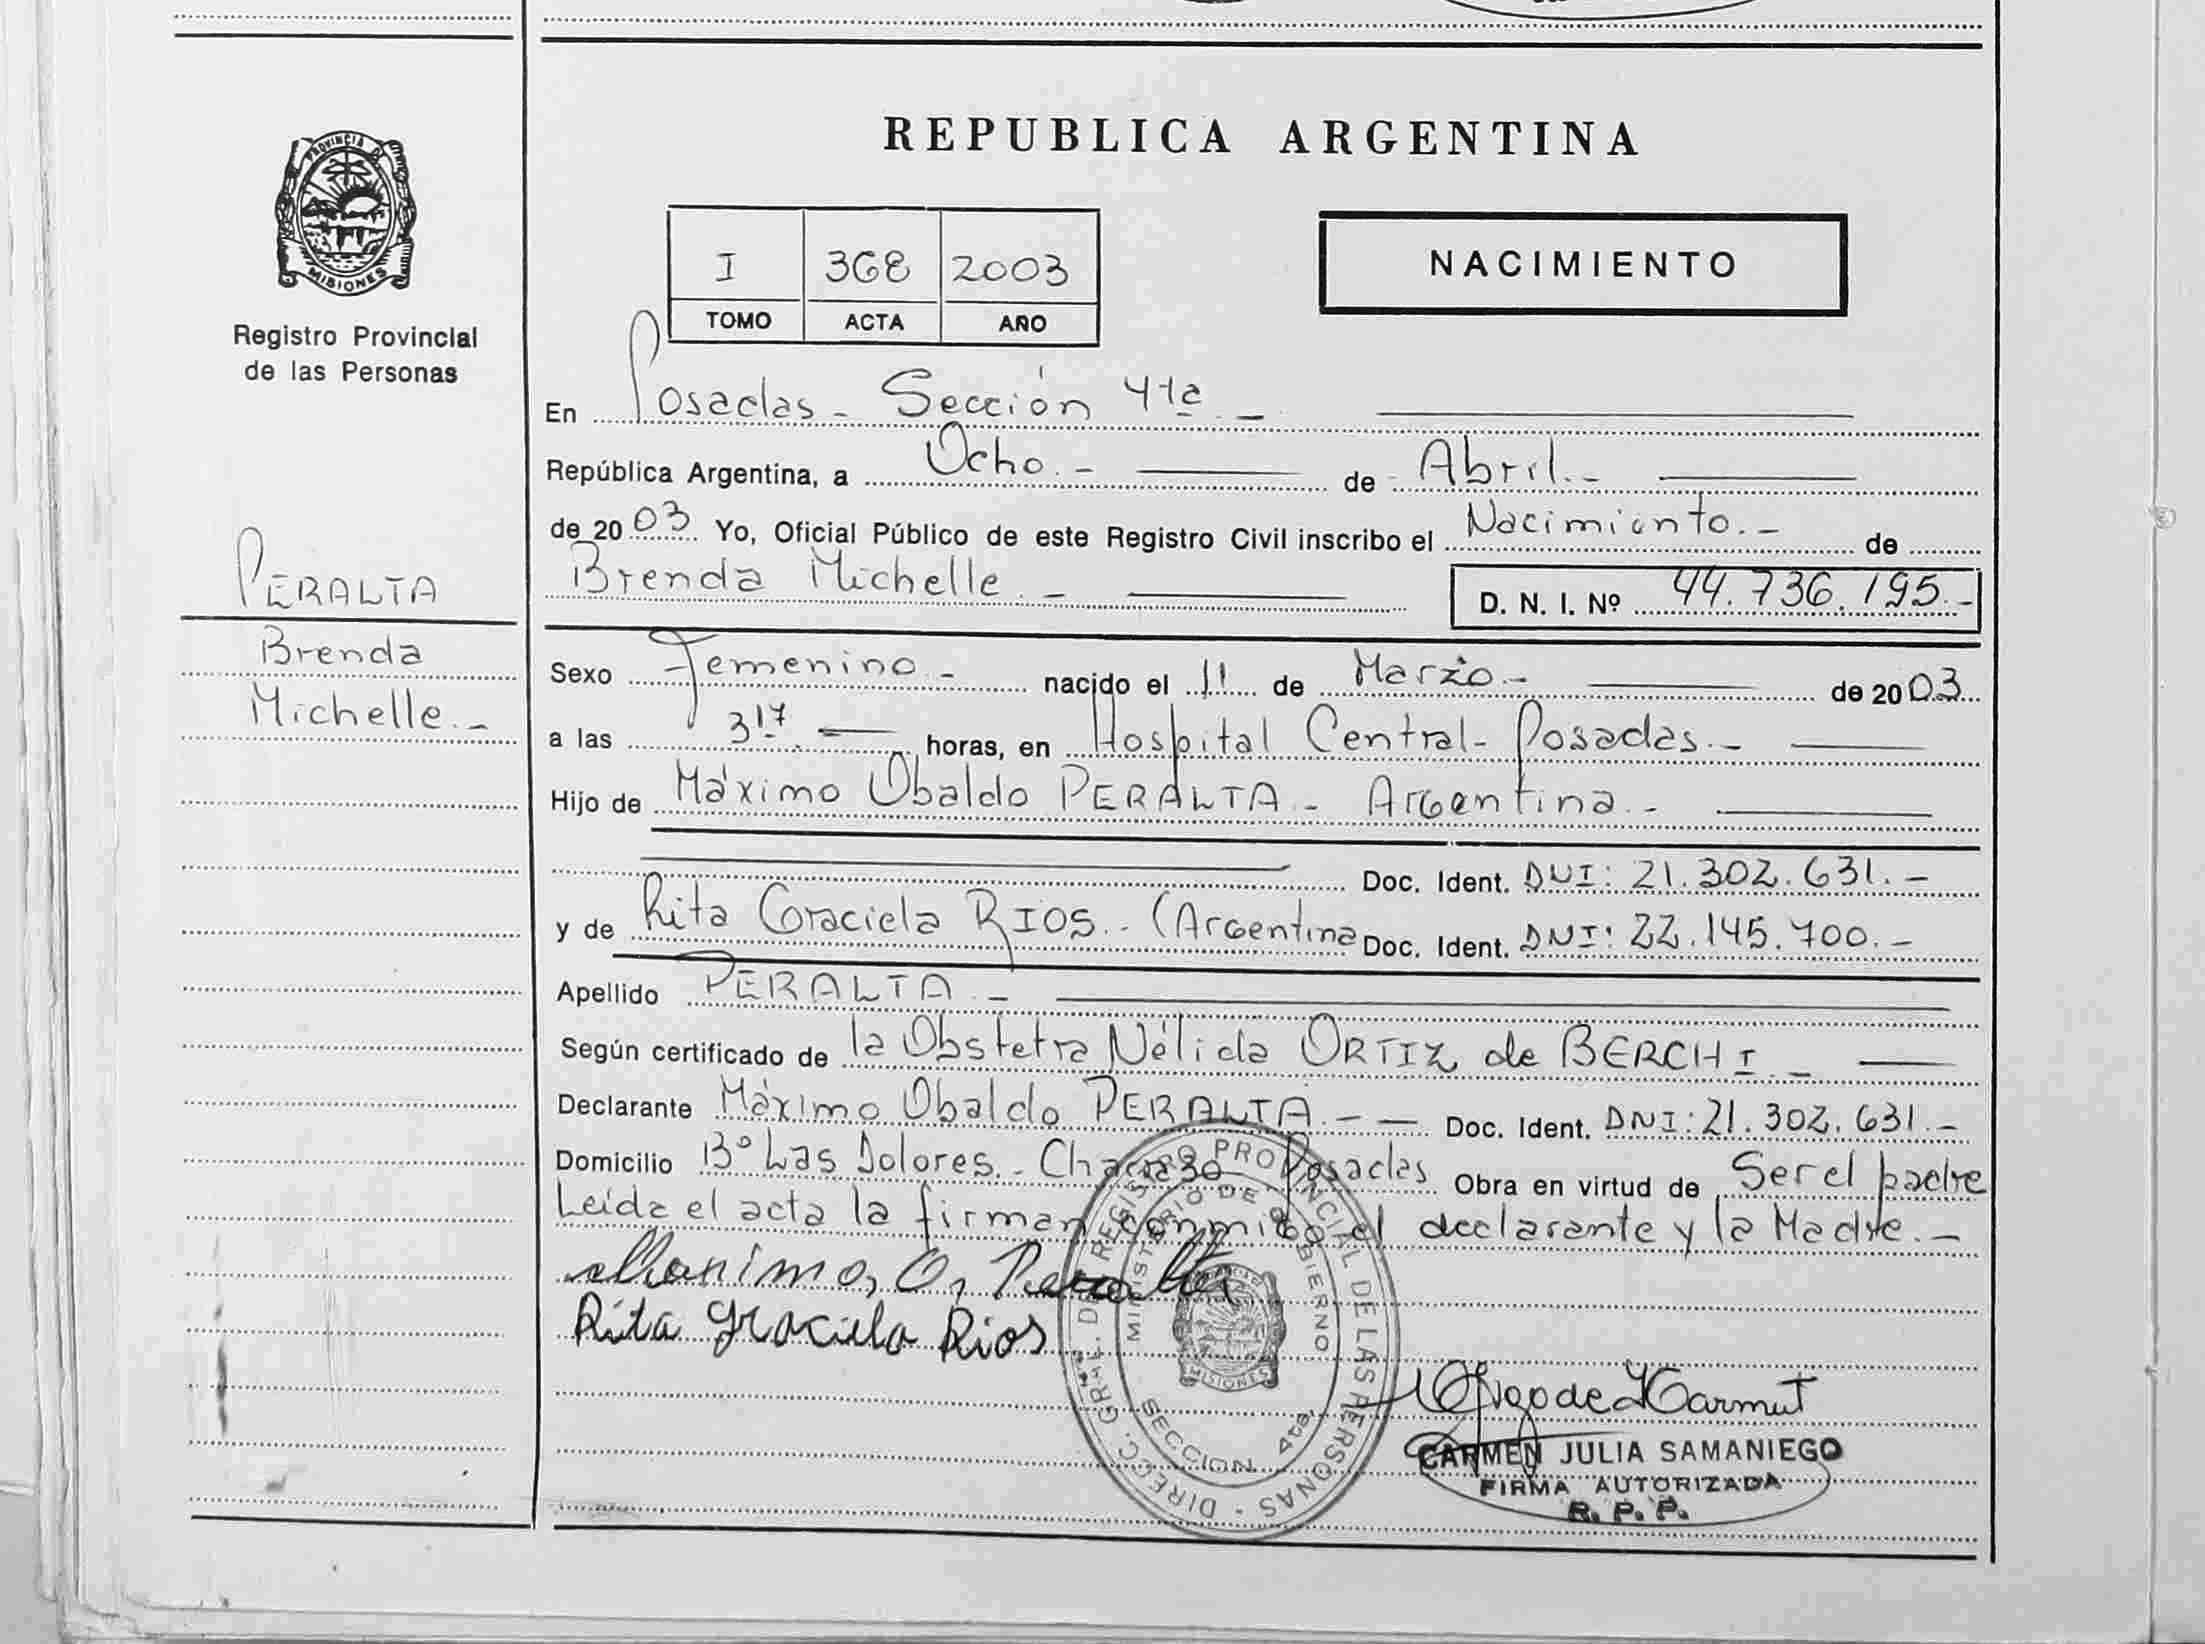 PROVINCIA DE
MISIONES
Registro Provincial
de las Personas
PERALTA
Brenda
Michelle.-
REPUBLICA ARGENTINA
I 368 2003
TOMO ACTA AÑO
NACIMIENTO
En Posadas - Sección 4ta. -
República Argentina, a Ocho.- de Abril.-
de 2003 Yo, Oficial Público de este Registro Civil inscribo el Nacimiento.- de
Brenda Michelle.- D. N. I. Nº 44.736.195.-
Sexo Femenino.- nacido el 11 de Marzo.- de 2003
a las 3 17. horas, en Hospital Central- Posadas.-
Hijo de Máximo Ubaldo PERALTA.- Argentina.-
Doc. Ident. DNI: 21.302.631.-
y de Rita Graciela RIOS.- (Argentina Doc. Ident. DNI: 22.145.700.-
Apellido PERALTA.-
Según certificado de la Obstetra Nélida ORTIZ de BERCHI.-
Declarante Máximo Ubaldo PERALTA.- Doc. Ident. DNI: 21.302.631.-
Domicilio Bº Las Dolores.- Chacra 30 Posadas Obra en virtud de Ser el padre
Leída el acta la firman conmigo el declarante y la Madre.-
Maximo, O, Peralta
Rita Graciela Rios
DIRECC. GRAL. DEL REGISTRO PROVINCIAL DE LAS PERSONAS -
MINISTERIO DE GOBIERNO
MISIONES
SECCION 4ta.
CARMEN JULIA SAMANIEGO
FIRMA AUTORIZADA
R. P. P.